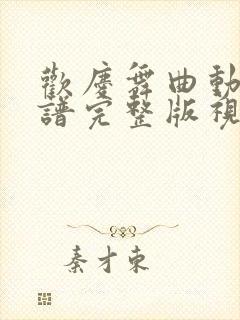 歡慶舞曲動
譜完整版視
秦才東